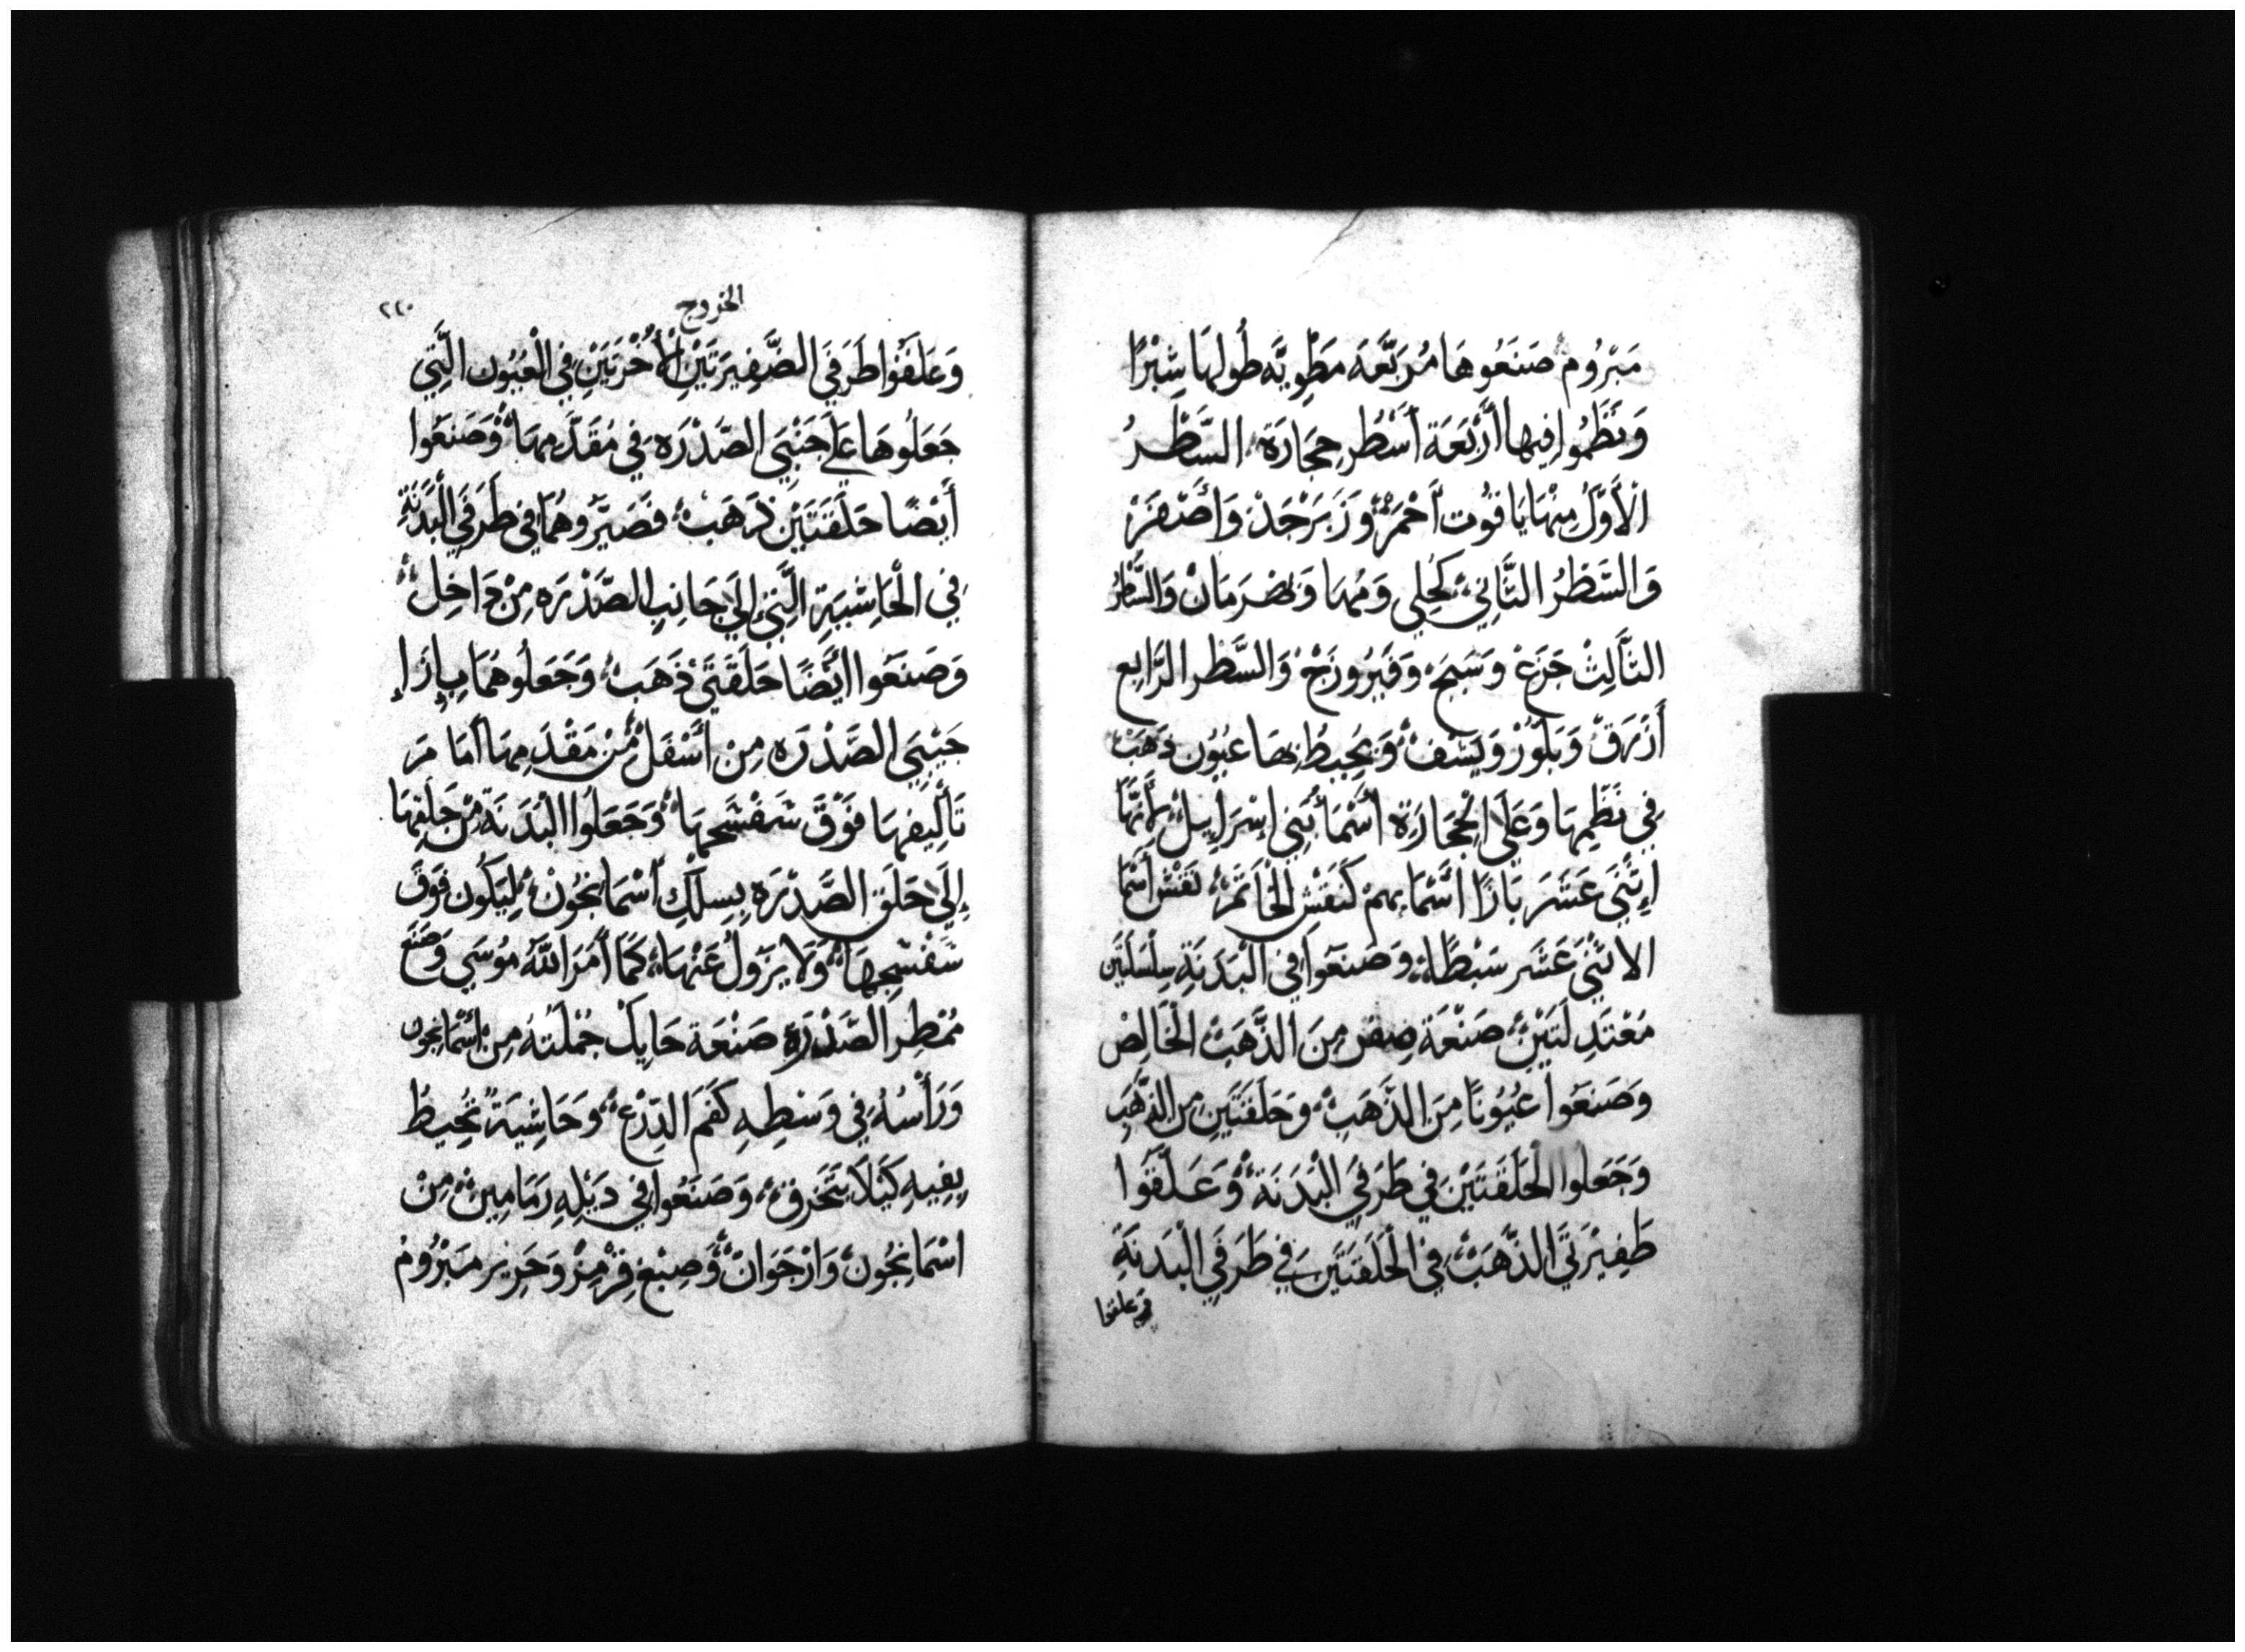 مَبْرُوم صَنَعُوهَا مُرَبَّعَه مَطْوِيَّه طُولهَا شِبْرًا
وَنَظَمُوا فِيها أَرْبَعَة أَسْطُر حِجَارَة السَّطْرُ
الأَوَّلُ مِنْهَا يَاقُوت أَحْمَرْ وَزَبَرْجَدْ وَأَصْفَرْ
وَالسَّطْرُ الثَّانِي كُحِلي وَمُهَا وَبَهْرَمَانْ وَالسَّطْرُ
الثَّالِثْ جَزَعْ وَسَبَجْ وَفَيْرُوزَجْ وَالسَّطْر الرَّابِع
أَزْرَقْ وَبَلّوْرْ وَيَشْفْ وَيُحِيطُ بِهَا عُيُون ذَهَبْ
فِي نَظْمِهَا وَعَلَى الْحِجَارَة أَسْمَا بَنِي اِسْرَايِيلْ لأَنَّهَا
إِثْنَي عَشَرَ بَازًا أَسْمَاءِهم كَنَقْش الْخَاتَمْ نَقْش أَسْمَا
الاثْنَي عَشَر سَبْطًا وَصَنَعَوا فِي الْبَدَنَةِ سِلْسِلَتَين
مَعْتَدِلَتَيْن صَنْعَة ضِفْر مِنَ الذَّهَبْ الْخَالِصْ
وَصَنَعَوا عُيُونًا مِنَ الذَّهَبِ وَحَلَقَتَيْنِ مِن الذَّهَب
وَجَعَلوا الْحَلَقَتَيْن فِي طَرَفَيْ الْبَدَنَة وَعَلَّقَوا
ظَفِيْرَتَيَ الذَّهَبْ فِي الْحَلَقَتَيْن فِي طَرَفَي الْبَدنَةِ
وعلقوا
الخروج
٢٢٠
وَعَلَقَوْا طَرَفَي الضَّفِيرَتَيْنِ الأُخْرَتَيْنِ فِي الْعُيُون الَّتِي
جَعَلُوهَا عَلَى جَنْبَي الصَّدْرَه فِي مُقَدَّمِهَا وَصَنَعَوا
أَيْضًا حَلَقَتَيْن ذَهَبْ فَصَيَّرُوهُمَا فِي طَرَفَي الْبَدَنَةِ
فِي الْحَاشِيَةِ الَّتِي اِلَى جَانِب الصَّدْرَه مِنْ دَاخِل
وَصَنَعَوا أَيْضًا حَلَقَتَيْ ذَهَبْ وَجَعَلُوهُمَا بِإِزَاءِ
جَيْبَي الصَّدْرَه مِن أَسْفَلْ مِنْ مَقْدَمِهَا أَمَا مَ
تَأْلِيفهَا فَوْقَ شَفْشَجهَا وَجَعَلُوا الْبَدَنَة مِن حَلَقِهَا
إِلَى حَلَق الصَّدْرَه بِسِلْك أَسْمَا نْجُونْ لِيَكُون فَوقَ
شَفْشَجِهَا وَلاَ يَزُولُ عَنْهَا كَمَا أَمَرَ اللَّه مُوسَي وَصَنَعَ
مُمْطِر الصَّدْرَة صَنْعَة حَايِكْ جُمْلَتُهُ مِنْ اسْمَانجون
وَرَأْسُهُ فِي وَسَطِهِ كَفَمَ الدِرْعْ وَحَاشِيَةً تُحِيطُ
بِفِيهِ كَيْلاَ يَتَخَرقْ وَصَنَعُوا فِي دَيْلِهِ رَمَامِينْ مِنْ
اسْمَانْجُون وَارْجَوَانْ وَصِبْغ قِرْمِزْ وَحَرِير مَبْرُومْ